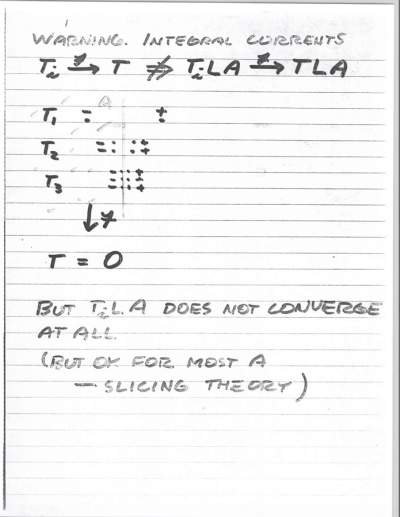 WARNING. INTEGRAL CURRENTS
Ti →ℱ T ⇏ Ti L A →ℱ T L A
A
T1
T2
T3
↓ ℱ
T = 0
BUT Ti L A DOES NOT CONVERGE
AT ALL
(BUT OK FOR MOST A
— SLICING THEORY)